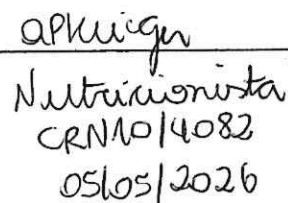 Nutricionista
CRN10/4082
05/05/2026